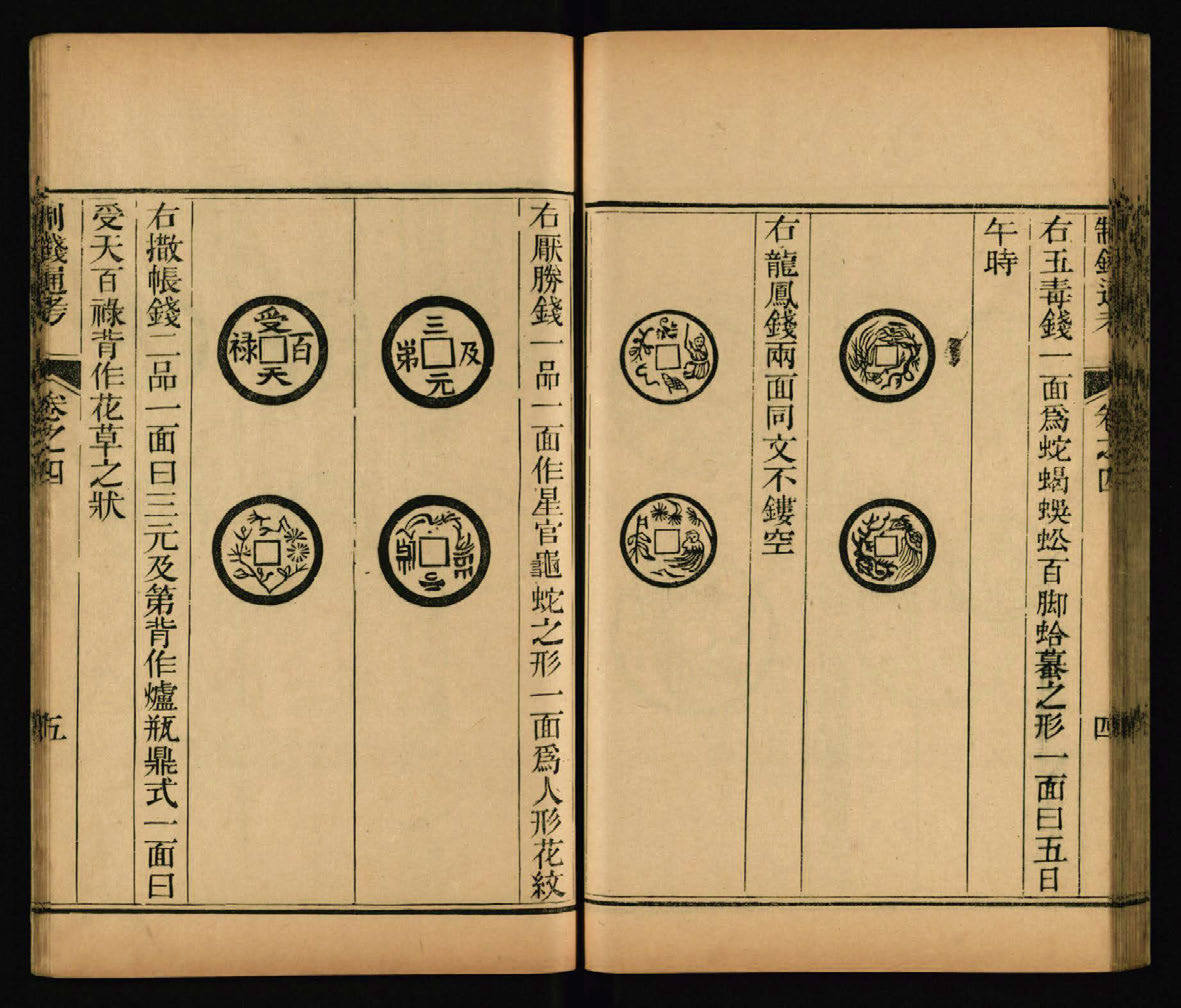 制錢通考
卷之四
四
右五毒錢一面爲蛇蝎蜈蚣百脚蛤蟇之形一面曰五日
午時
右龍鳳錢兩面同文不鏤空
右厭勝錢一品一面作星官龜蛇之形一面爲人形花紋
三元及苐
受天百禄
右撒帳錢二品一面曰三元及第背作爐瓶鼎式一面曰
受天百祿背作花草之狀
制錢通考
卷之四
五